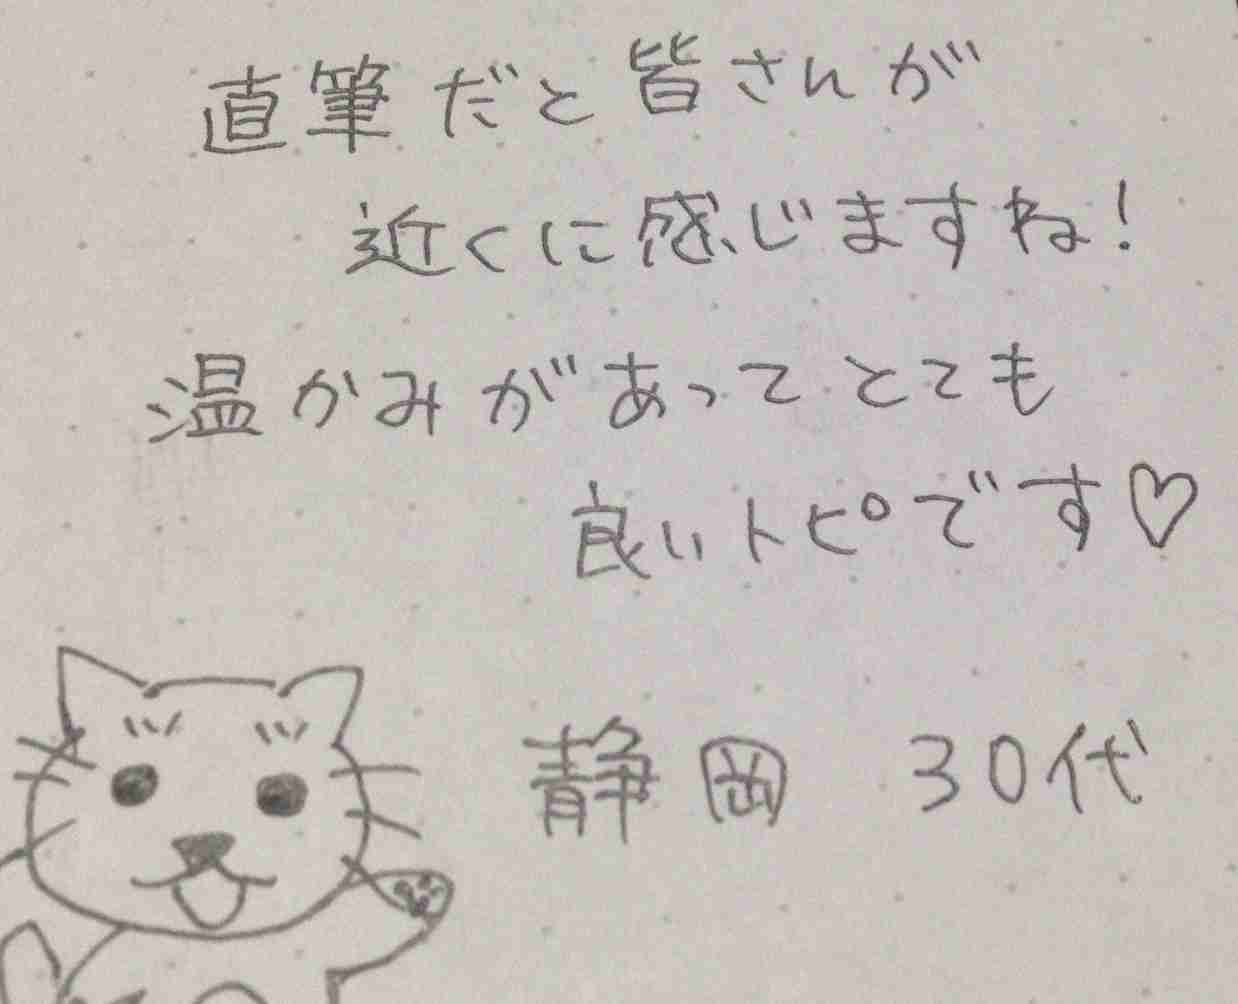 直筆だと皆さんが
近くに感じますね!
温かみがあってとても
良いトピです♡
静岡 30代